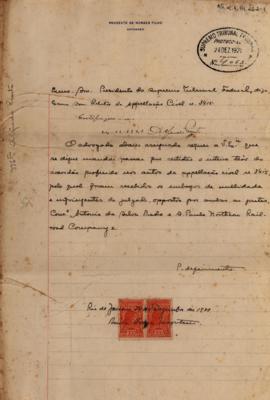 PRUDENTE DE MORAES FILHO
ADVOGADO
SUPREMO TRIBUNAL FEDERAL
PROTOCOLO
24 DEZ 1920
Exmo. Snr. Presidente do Supremo Tribunal Federal,
Appellação Civel n. 3415
O advogado abaixo assignado requer a V. Exa. que
se digne mandar passar por certidão o inteiro teor do
accordão proferido nos autos da appellação civel n. 3415
pelo qual foram recebidos os embargos de nullidade
e infringentes do julgado, oppostos por ambas as partes,
Antonio da Silva Prado e S. Paulo Northern Rail-
road Company
P. deferimento
Rio de Janeiro, de Dezembro de